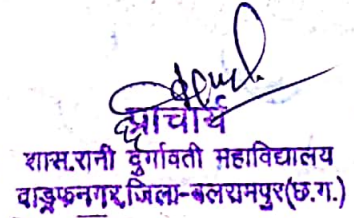 प्राचार्य
शास.रानी दुर्गावती महाविद्यालय
वाड्रफनगर,जिला-बलरामपुर(छ.ग.)